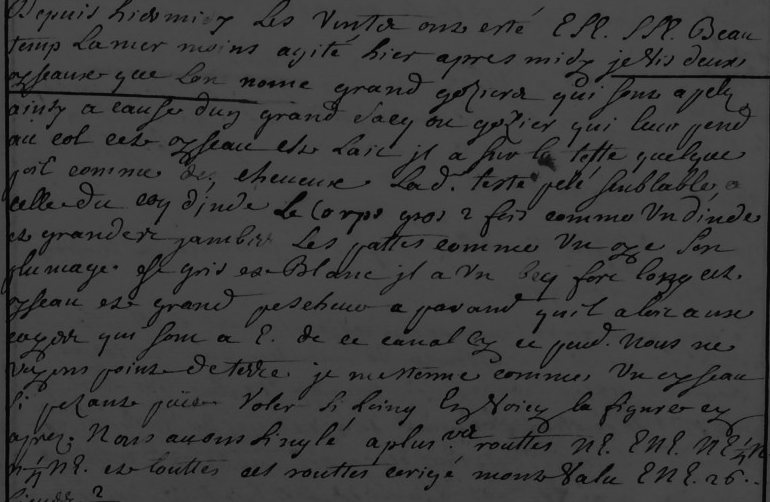 Depuis hier midy Les Ventes ont esté ESE. SSE. Beau
temps La mer moins agité hier apres midy je vis deux
oyseaux que Lon nome grand goziers qui sont apelez
ainsy a cause dun grand sacq ou gozier qui leur pend
au col cet oyseau est Laid jl a sur la teste quelque
poil comme des cheueux Lad. teste pelé semblable a
celle du coq d'inde Le Corps gros 2 fois comme Vn d'inde
et grander jambes Les pattes comme Vn oye Son
plumage est gris et Blanc jl a Vn becq fort long cet
oyseau est grand pescheur
qui sont a E. de ce canal Nous ne
Voyons point de terre je mestonne comme Vn oyseau
si pezant puisse Voler si Loing En Voicy la figure cy
aprez. Nous auons singlé a plus.rs routtes NE. ENE. NE¼N
N¼NE. et touttes ces routtes corrigé mont Valu ENE. 26..
Lieues ²